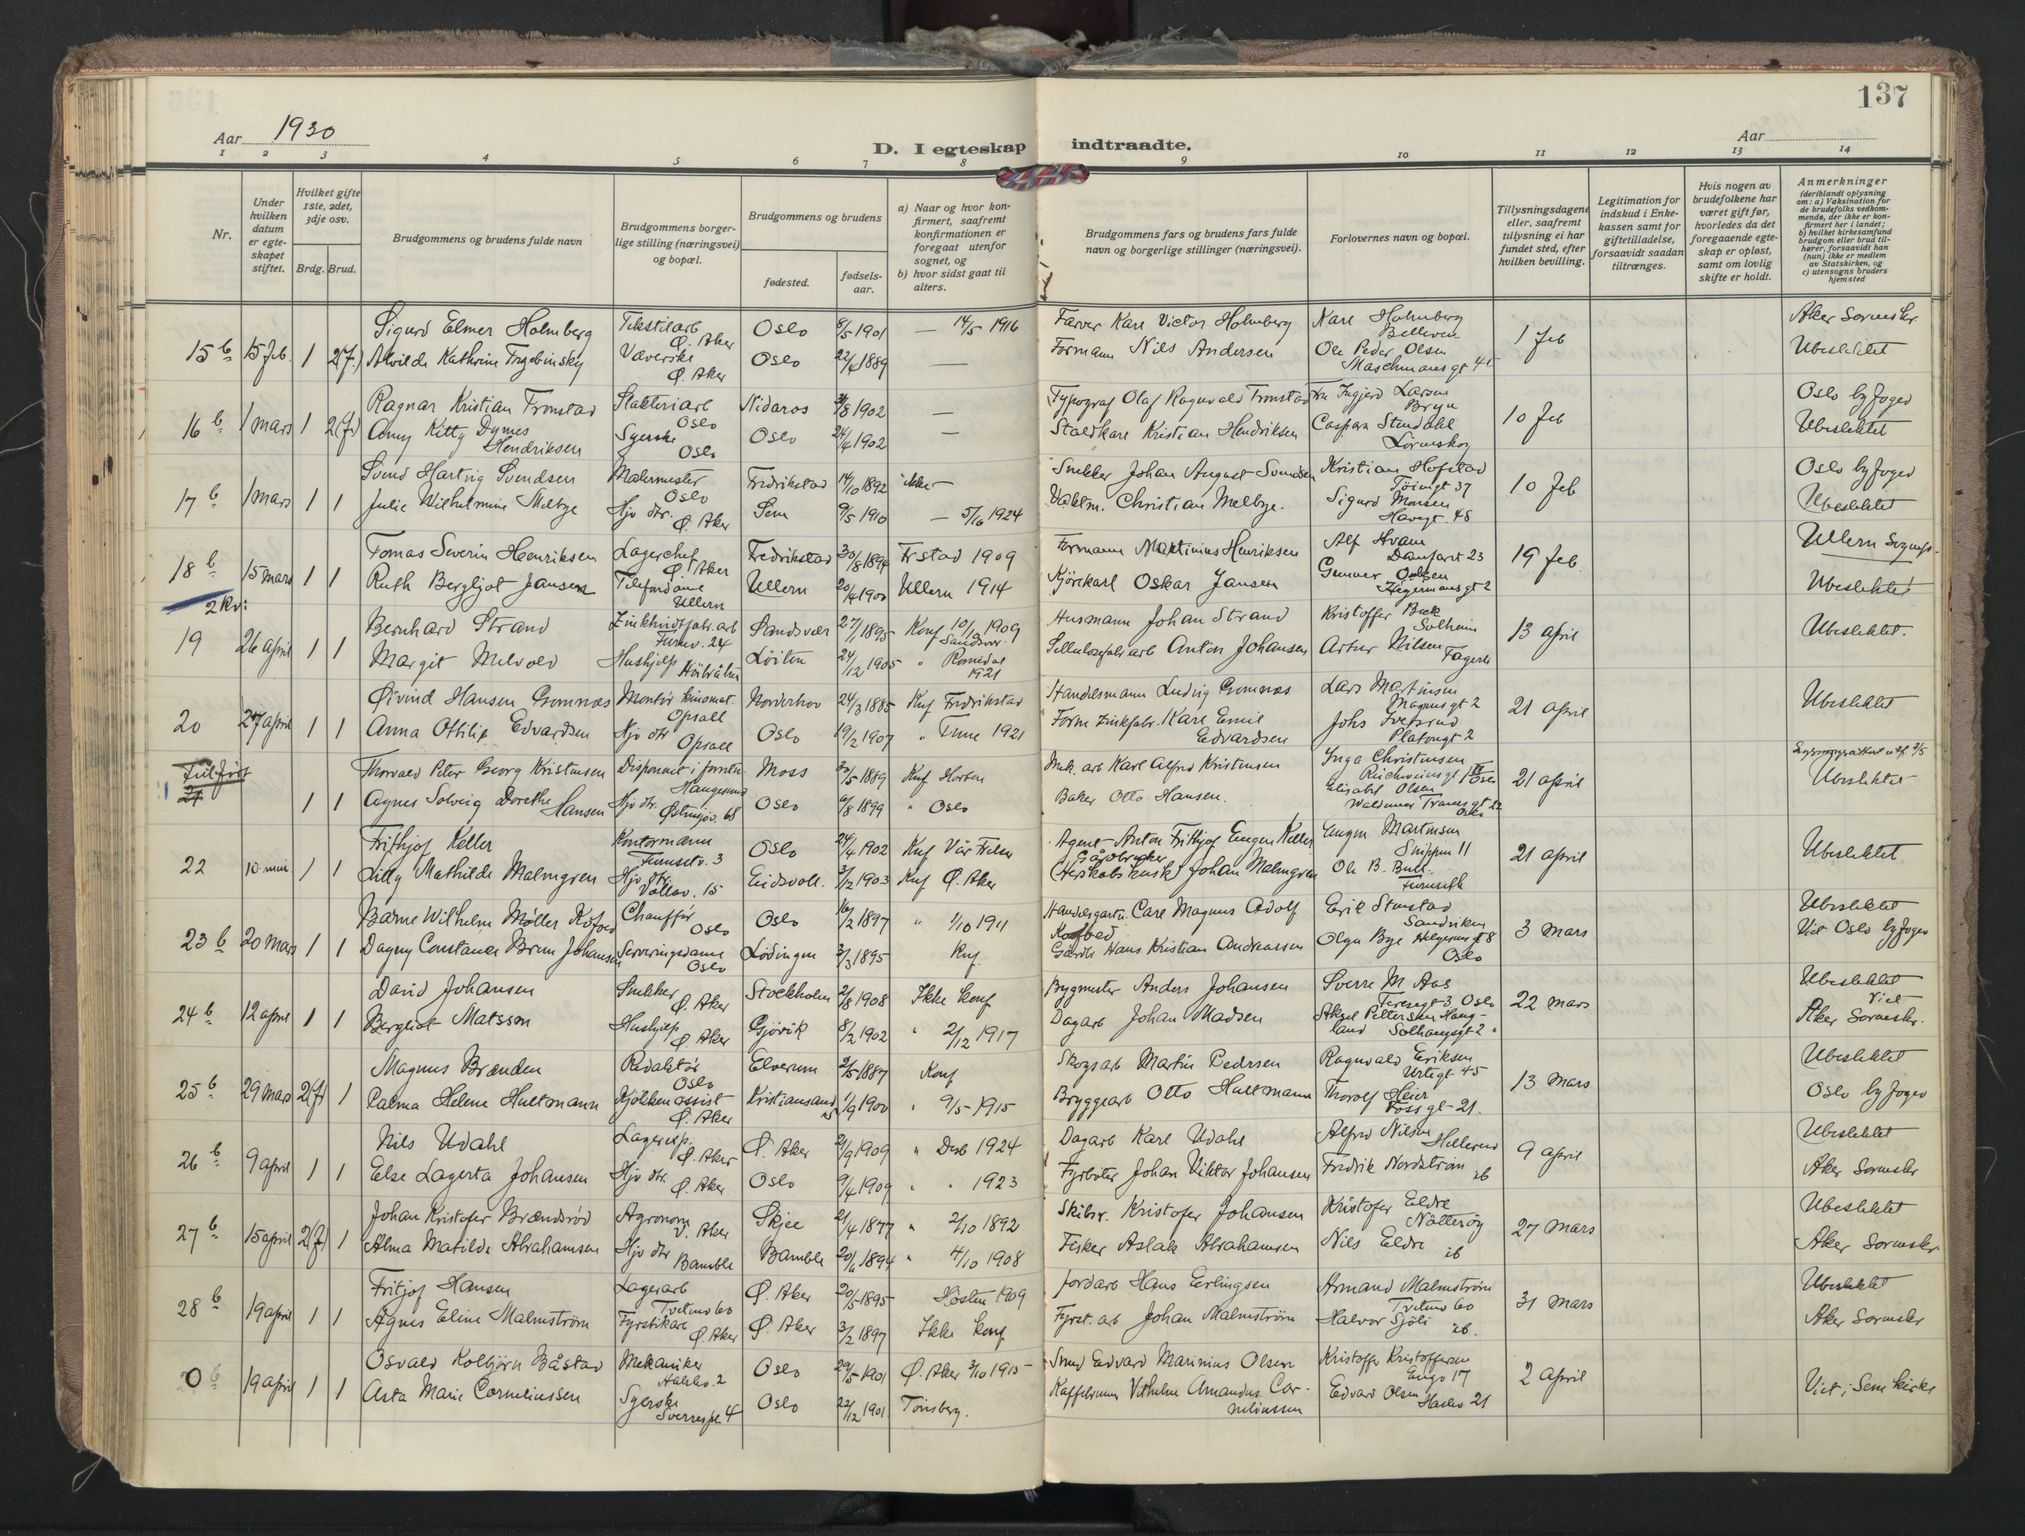 137
Aar 1930
D. I egteskap indtraadte.
Aar
1 2 3 4 5 6 7 8 9 10 11 12 13 14
Nr.
Under hvilken datum er egteskapet stiftet.
Hvilket gifte 1ste, 2det, 3dje osv.
Brdg. Brud.
Brudgommens og brudens fulde navn
Brudgommens borgerlige stilling (næringsvei) og bopæl.
Brudgommens og brudens
fødested.
fødselsaar.
a) Naar og hvor konfirmert, saafremt konfirmationen er foregaat utenfor sognet, og
b) hvor sidst gaat til alters.
Brudgommens fars og brudens fars fulde navn og borgerlige stillinger (næringsvei).
Forlovernes navn og bopæl.
Tillysningsdagene eller, saafremt tillysning ei har fundet sted, efter hvilken bevilling.
Legitimation for indskud i Enkekassen samt for giftetilladelse, forsaavidt saadan tiltrænges.
Hvis nogen av brudefolkene har været gift før, hvorledes da det foregaaende egteskap er opløst, samt om lovlig skifte er holdt.
Anmerkninger
(deriblandt oplysning om: a) Vaksination for de brudefolks vedkommende, der ikke er konfirmert her i landet; b) hvilket kirkesamfund brudgom eller brud tilhører, forsaavidt han (hun) ikke er medlem av Statskirken, og c) utensogns bruders hjemsted
15 b 15 feb. 1 2(f.)
Sigurd Elmer Holmberg Tekstilarb Ø. Aker Oslo 8/5 1901 — 14/5 1916 Farver Karl Victor Holmberg Karl Holmberg 1 feb Aker Sorenskr
Alvilde Kathrine Væverske Ø. Aker Oslo 22/4 1889 — Formann Nils Andersen Ole Peder Olsen Maschmansgt Ubeslektet
16 b 1 mars 1 2(f)
Ragnar Kristian Tronstad Slakteriarb Oslo Nidaros 8 1902 — Typograf Olaf Ragnvald Tronstad Fru Ingjerd Larsen Bryn 10 feb Oslo byfoged
Amy Kitty Dynes Hendriksen Syerske Oslo Oslo 24/6 1902 — Staldkarl Kristian Hendriksen Caspara Stendahl Lørenskog Ubeslektet
17 b 1 mars 1 1
Svend Hartvig Svendsen Malermester Oslo Fredrikstad 14/10 1892 ikke — Snekker Johan August Svendsen Kristian Hofstad Tøiengt 37 10 feb Oslo byfoged
Julie Wilhelmine Melbye Hjv dtr. Ø. Aker Sem 9/5 1910 — 5/10 1924 Christian Melbye. Sigurd Monsen Havegt. 48 Ubeslektet
18 b 15 mars 1 1
Tomas Severin Henriksen Lagerchef Ø. Aker Fredrikstad 30/8 1894 Frstad 1909 Formann Martinius Henriksen Alf Hvam Danfarst 23 19 feb. Ullern Sognepr.
Ruth Bergljot Jansen Telefondame Ullern Ullern 20/4 1900 Ullern 1914 Kjørekarl Oskar Jansen Gunnar Olsen Hegermansgt 2 Ubeslektet
2 Kv:
19 26 april 1 1
Bernhard Strand Furuv. 24 Sandsvær 27/1 1895 Konf 10/10 1909 Sandsvær Husmann Johan Strand Kristoffer Bek Solheim 13 april Ubeslektet.
Margit Melvold Hushjelp Løiten 24/12 1905 " Romedal 1921 Sellulosefabr arb Anton Johansen Artur Nilsen
20 27 april 1 1
Øivind Hansen Gomnæs Montør kinomat. Opsall Norderhov 24/3 1885 Knf Fredrikstad Handelsmann Ludvig Gomnæs Lars Martinsen Magnusgt 2 21 april Ubeslektet
Anna Ottilie Edvardsen Hjv dtr Opsall Oslo 19/2 1907 " Tune 1921 Form Zinkfabr. Karl Emil Edvardsen Johs Platousgt 2
Tilført 21 1 1
Thorvald Peter Georg Kristensen Haugesund Moss 20/5 1889 Knf Horten Mek. arb Karl Alfred Kristensen Inga Christensen 21 april Ubeslektet
Agnes Solveig Dorethe Hansen Hjv dtr. Østensjøv. 68 Oslo 6/8 1899 " Oslo Baker Otto Hansen. Elisabet Olsen Waldemar Tranesgt 22 Oslo
22 10 mai 1 1
Frithjof Keller Kontormann Furusetv. 3 Oslo 24/4 1902 Knf Vår Frelser Agent Anton Frithjof Eugen Keller Eugen Martinsen Skippergt 11 21 april Ubeslektet
Lilly Mathilde Malmgren Hjv dtr. Vollav. 15 Eidsvoll. 3/12 1903 Knf Ø. Aker Gårdbruker (Herskabskusk) Johan Malmgren Ole B. Bull. Furuseth
23 b 20 mars 1 1
Barne Wilhelm Møller Kofoed Chauffør Oslo Oslo 16/2 1897 " 1/10 1911 Handelsgartn. Carl Magnus Adolf Kofoed Erik Stenstad Sandviken 3 mars Ubeslektet
Dagny Constance Brun Johansen Serveringsdame Oslo Lødingen 3/3 1895 Knf. Gårdb Hans Kristian Andreassen Olga Bye Helgesensgt 8 Oslo Viet Oslo byfoged
24 b 12 april 1 1
David Johansen Snekker Ø. Aker Stockholm 2/8 1908 Ikke konf Bygmester Anders Johansen Sverre M Aas Teresegt 3 Oslo 22 mars Ubeslektet Viet
Bergliot Matsson Hushjelp Ø. Aker Gjøvik 8/2 1902 " 2/12 1917 Dagarb Johan Madsen Aksel Pettersen Haugland Solhaugsgt 2 " Aker Sorenskr.
25 b 29 mars 2(f) 1
Magnus Brænden Redaktør Oslo Elverum 2/5 1887 Konf Skogsarb Martin Pedersen Ragnvald Eriksen Urtegt 45 13 mars Ubeslektet
Palma Helene Hultmann Kjøkkenassist Ø. Aker Kristiansand 1/9 1900 " 9/5-1915 Bryggearb Otto Hultmann Thorolf Heier Fossgt-21. Oslo byfoged
26 b 9 april 1 1
Nils Udahl Lagereksp. Ø. Aker Ø. Aker 2/9 1909 " Desb 1924 Dagarb Karl Udahl Alfred Nilsen Hellerud 9 april Ubeslektet
Else Lagerta Johansen Hjv dtr. Ø. Aker Oslo 9/4 1909 " " 1923 Fyrbøter Johan Viktor Johansen Fredrik Nordstrøm ib Aker Sorenskr
27 b 15 april 2(f) 1
Johan Kristofer Brændsrød Agronom V. Aker Skjee 2/4 1877 " 2/10 1892 Skibsr. Kristofer Johansen Kristofer Eldre Nötterøy 27 mars Ubeslektet
Alma Matilde Abrahamsen Hjv dtr Bamble Bamble 20/6 1894 " 4/10 1908 Fisker Aslak Abrahamsen Nils Eldre ib Aker Sorenskr.
28 b 19 april 1 1
Fritjof Hansen Lagerarb Tvetenv 60 Ø. Aker 20/5 1895 Høsten 1909 Jordarb Hans Erlingsen Armand Malmstrøm Tvetenv 60 31 mars Ubeslektet
Agnes Eline Malmstrøm Fyrstikarb Ø. Aker Ø. Aker 3/2 1897 Ikke konf Fyrst. arb Johan Malmstrøm Halvor Sjøli ib. Aker Sorenskr
0 b 19 april 1 1
Osvald Kolbjørn Båstad Mekaniker Oslo 29/5 1901 Ø. Aker 3/10 1915 Smed Edvard Marinius Olsen Kristoffer Kristoffersen Engv 17 2 april Viet i Sem kirke
Asta Marie Corneliussen Syerske Sverrespl. 4 Oslo 22/12 1901 Tønsberg. Kaffebrenner Vilhelm Amandus Corneliussen Edvard Olsen Haslev 21